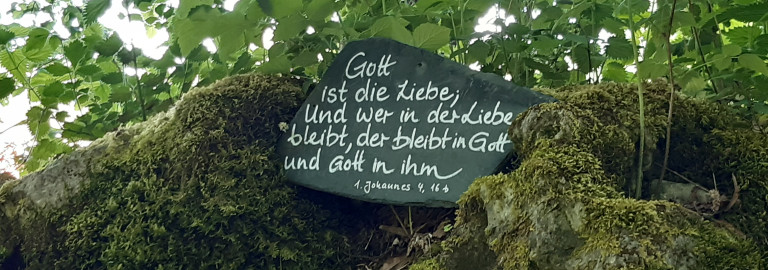 Gott
ist die Liebe;
Und wer in der Liebe
bleibt, der bleibt in Gott
und Gott in ihm
1. Johannes 4, 16 b